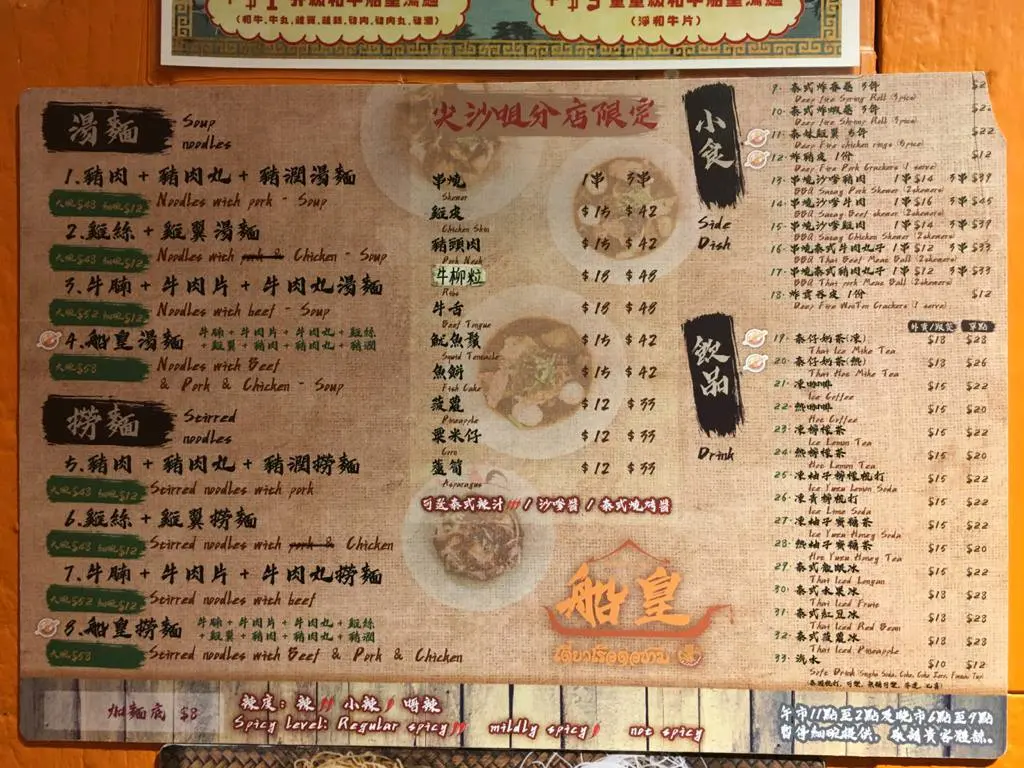 (和牛,牛丸,豬肉,豬肉丸,豬潤)
(淨和牛片)
湯麵
Soup
noodles
1.豬肉 + 豬肉丸 + 豬潤湯麵
Noodles with pork - Soup
2.雞絲 + 雞翼湯麵
Noodles with pork & Chicken - Soup
3.牛腩 + 牛肉片 + 牛肉丸湯麵
大碗$52 細碗$12
Noodles with beef - Soup
4.船皇湯麵
牛腩+牛肉片+牛肉丸+雞絲
+雞翼+豬肉+豬肉丸+豬潤
大碗$58
Noodles with Beef
& Pork & Chicken - Soup
撈麵
Stirred
noodles
5.豬肉 + 豬肉丸 + 豬潤撈麵
Stirred noodles with pork
6.雞絲 + 雞翼撈麵
Stirred noodles with pork & Chicken
7.牛腩 + 牛肉片 + 牛肉丸撈麵
大碗$52 細碗$12
Stirred noodles with beef
8.船皇撈麵
牛腩+牛肉片+牛肉丸+雞絲
+雞翼+豬肉+豬肉丸+豬潤
大碗$58
Stirred noodles with Beef & Pork & Chicken
尖沙咀分店限定
串燒 1串 3串
Skewer
雞皮 $15 $42
Chicken Skin
豬頭肉 $15 $42
Pork Neck
牛柳粒 $18 $48
牛舌 $18 $48
Beef Tongue
魷魚鬚 $15 $42
Squid Tentacle
魚餅 $15 $42
Fish Cake
菠蘿 $12 $33
Pineapple
粟米仔 $12 $33
Corn
蘆筍 $12 $33
Asparagus
可送泰式辣汁 / 沙嗲醬 / 泰式燒烤醬
船皇
小食
Side
Dish
9. 泰式炸春卷 3件
Deep Fire Spring Roll (3pics)
10. 泰式炸蝦卷 3件
Deep Fire Shrimp Roll (3pics)
11. 泰妹雞翼 5件 $22
Deep Fire chicken rings (5pics)
12. 炸豬皮 1份 $12
Deep Fire Pork Crackers (1 serve)
13. 串燒沙嗲豬肉 1串$14 3串$39
BBQ Satay Pork Skewer (2skewers)
14. 串燒沙嗲牛肉 1串$16 3串$45
BBQ Satay Beef skewer (2skewers)
15. 串燒沙嗲雞肉 1串$14 3串$39
BBQ Satay Chicken Skewer (2skewers)
16. 串燒泰式牛肉丸子 1串$12 3串$33
BBQ Thai Beef Meat Ball (2skewers)
17. 串燒泰式豬肉丸子 1串$12 3串$33
BBQ Thai pork Meat Ball (2skewers)
18. 炸雲吞皮 1份 $12
Deep Fire WonTon Crackers (1 serve)
飲品
Drink
外賣/跟餐 單點
19. 泰仔奶茶(凍) $18 $28
Thai Ice Milk Tea
20. 泰仔奶茶(熱) $18 $26
Thai Hot Milk Tea
21. 凍咖啡 $15 $22
Ice Coffee
22. 熱咖啡 $15 $20
Hot Coffee
23. 凍檸檬茶 $15 $22
Ice Lemon Tea
24. 熱檸檬茶 $15 $20
Hot Lemon Tea
25. 凍柚子檸檬梳打 $15 $22
Ice Yuzu Lemon Soda
26. 凍青檸梳打 $15 $22
Ice Lime Soda
27. 凍柚子蜜糖茶 $15 $22
Ice Yuzu Honey Soda
28. 熱柚子蜜糖茶 $15 $20
Hot Yuzu Honey Tea
29. 泰式龍眼冰 $15 $22
Thai Iced Longan
30. 泰式水果冰 $18 $28
Thai Iced Fruit
31. 泰式紅豆冰 $18 $28
Thai Iced Red Bean
32. 泰式菠蘿冰 $18 $28
Thai Iced Pineapple
33. 汽水 $10 $12
加麵底 $8
辣度: 辣 小辣 唔辣
Spicy Level: Regular spicy mildly spicy not spicy
午市11點至2點及晚市6點至9點
暫停細碗提供,敬請貴客體諒。